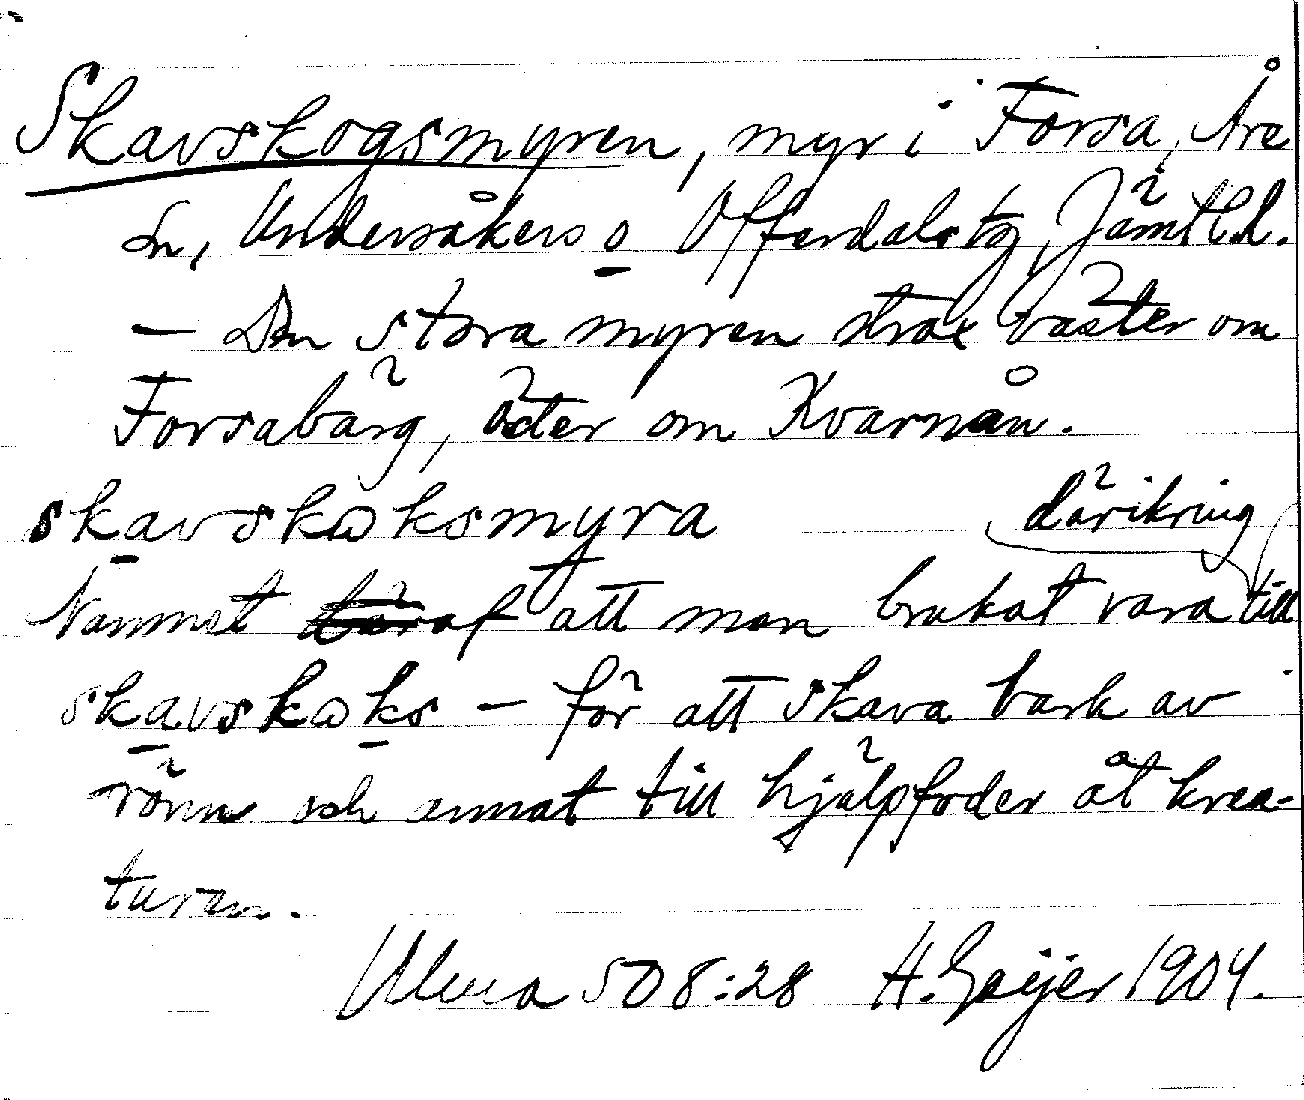 Skavskogsmyren, myr i Forsa, Åre
sn, Undersåkers o Offerdals tg, Jämtl.l.
— Den stora myren strax väster om
Forsabärg, öster om Kvarnån.
skavskωksmyra därikring
Namnet däraf att man brukat vara till
skavskωks — för att skava bark av
rönn och annat till hjälpfoder åt krea-
turen.
Ulma 508:28 H. Geijer 1904.